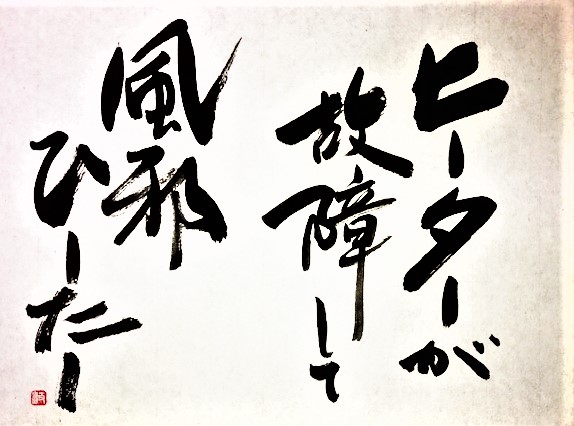 ヒーターが
故障して
風邪
ひーたー